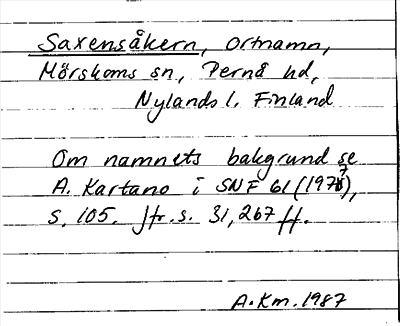 Saxensåkern, ortnamn,
Mörskoms sn, Pernå hd,
Nylands l. Finland
Om namnets bakgrund se
A. Kartano i SNF 61 (1973),
s. 105. Jfr. s. 31, 267 ff.
A.Km. 1987